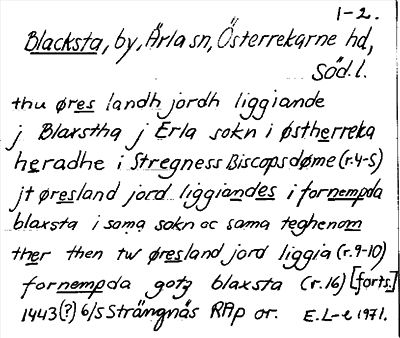 1-2.
Blacksta, by, Ärla sn, Österrekarne hd,
Söd. l.
thu øres landh jordh liggiande
j Blaxstha j Erla sokn i østherreka
heradhe i Stregness Biscopsdøme (r.4-5)
jt øresland jord liggiandes i fornempda
blaxsta i sama sokn oc sama teghenom
ther then tw øresland jord liggia (r.9-10)
fornempda gotz blaxsta (r.16) [forts.]
1443(?) 6/5 Strängnäs RAp or. E.L-e 1971.